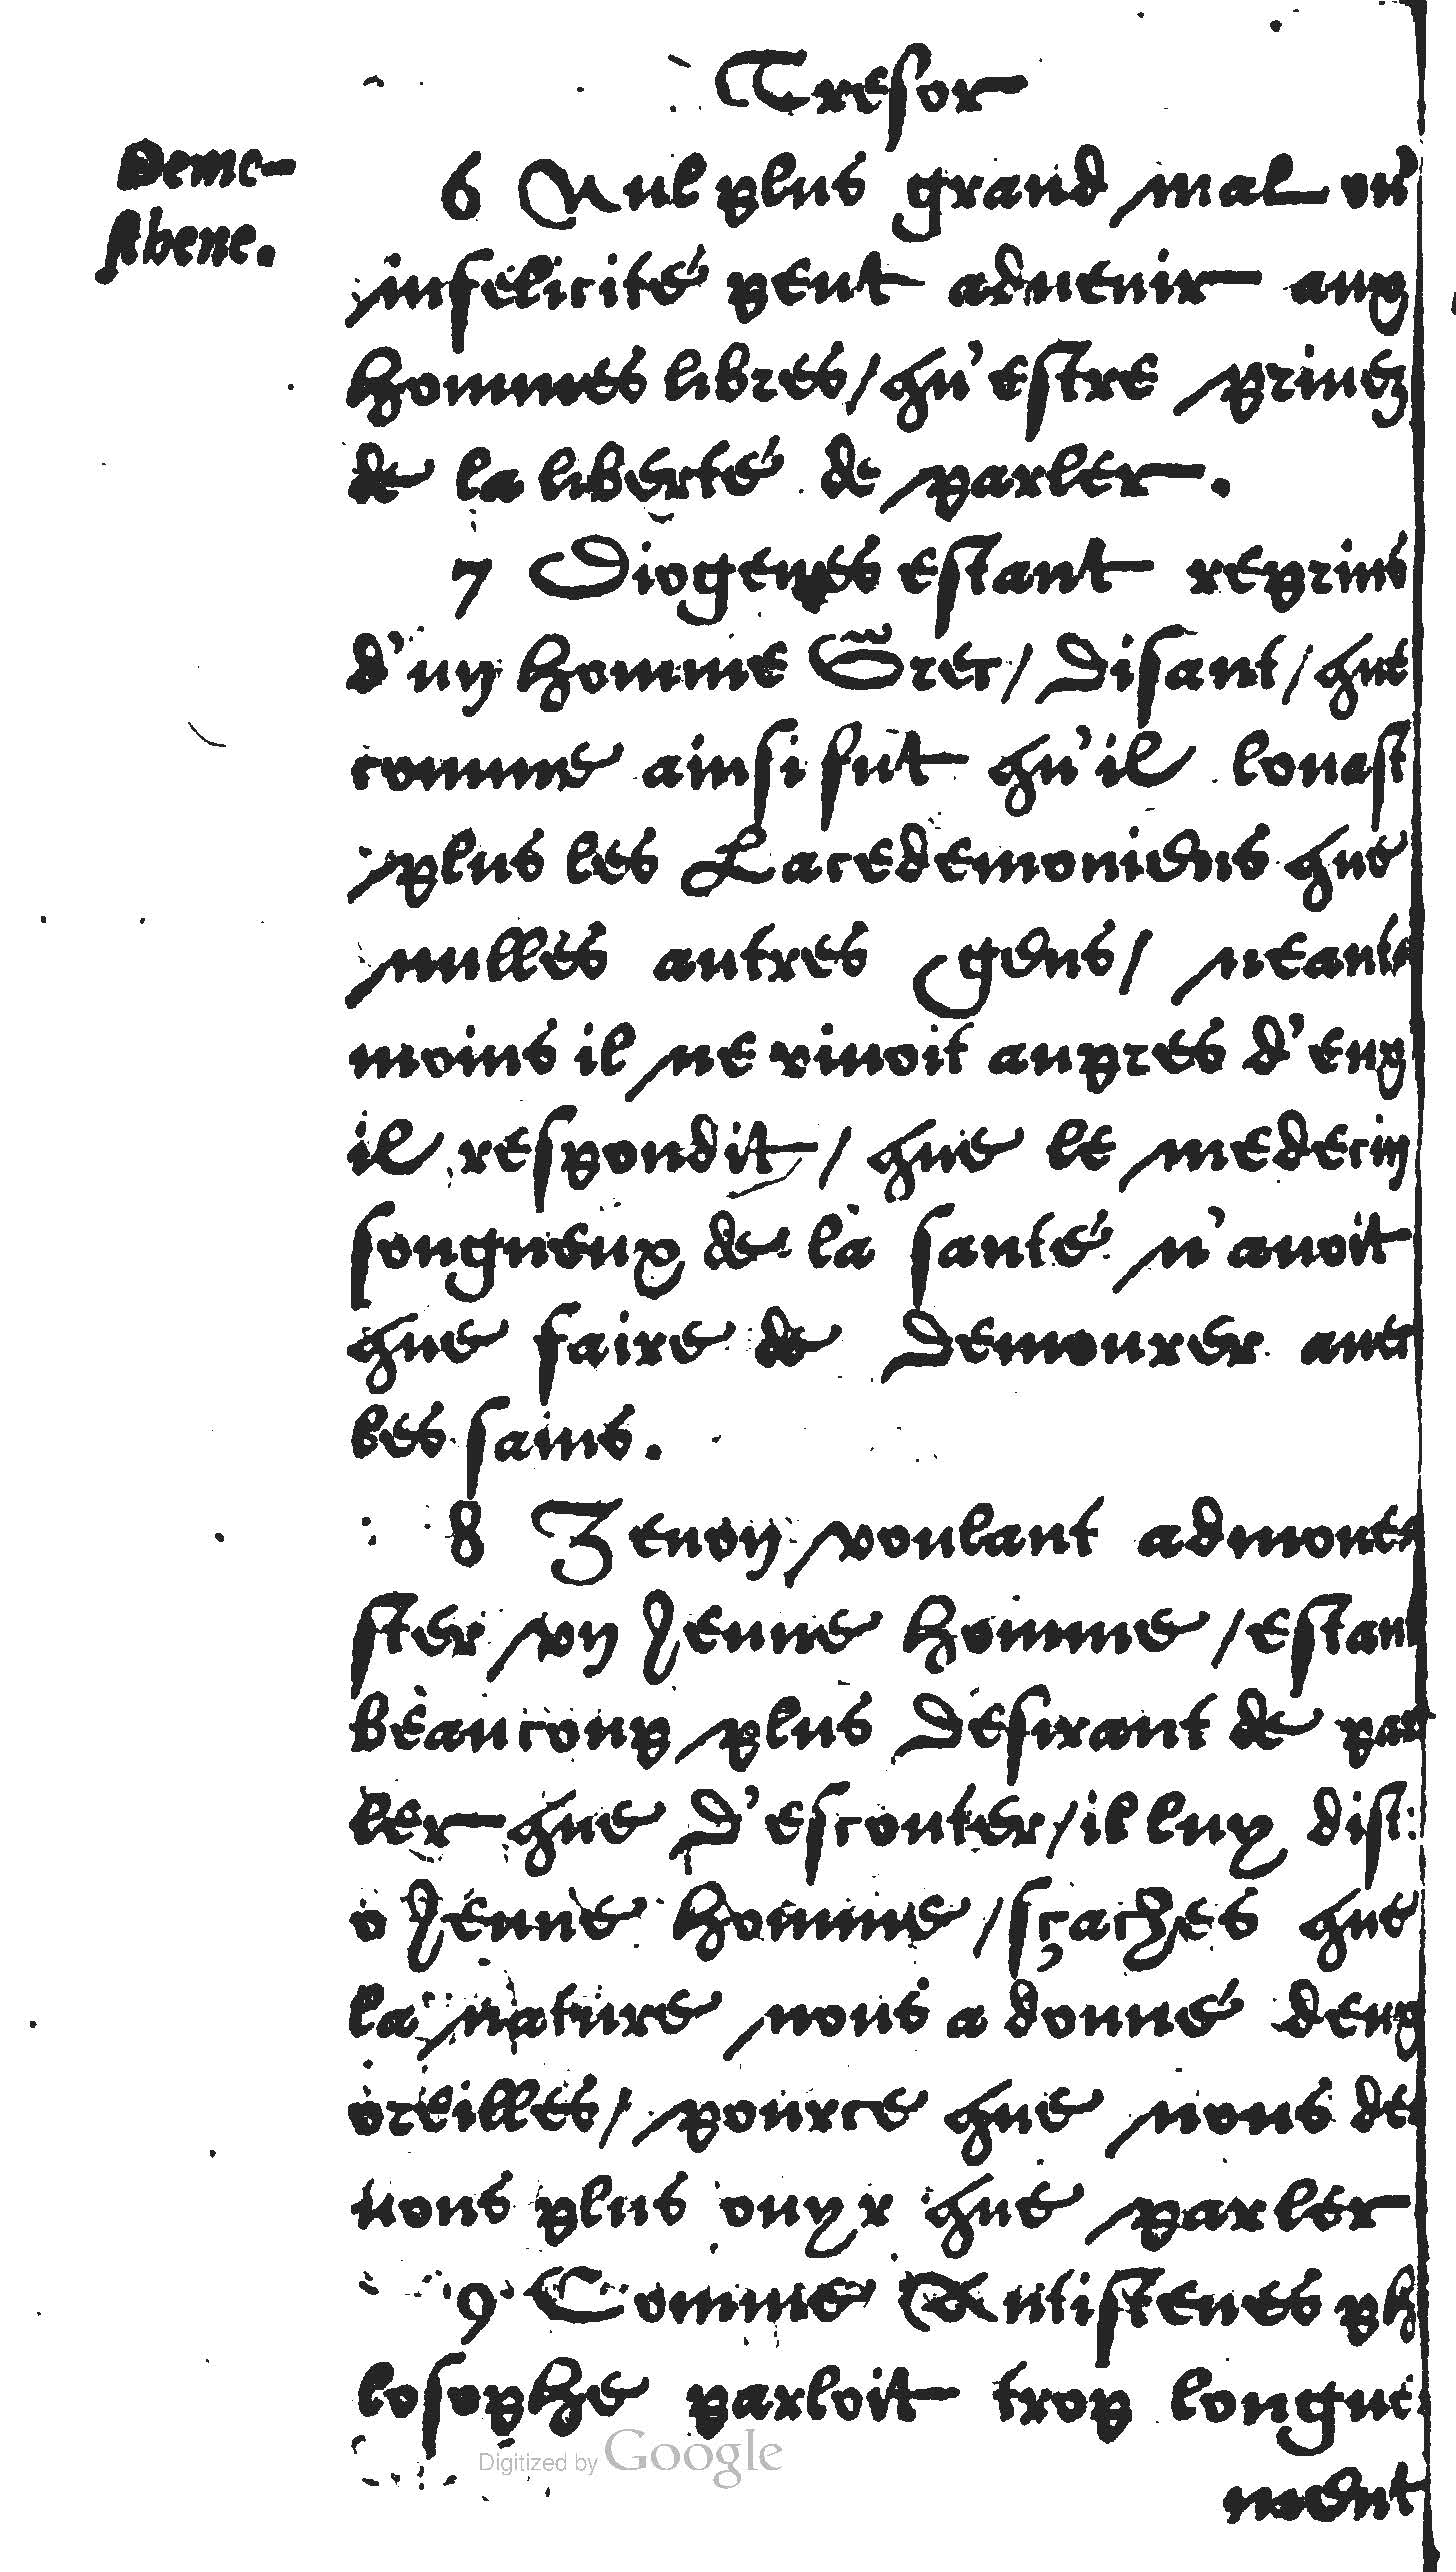 Tresor
Deme-
sthene.
6 Nul plus grand mal ou
infelicité peut aduenir aux
hommes libres/ qu'estre priuez
de la liberté de parler.
7 Diogenes estant reprins
d'un homme Grec/ disant/ que
comme ainsi fut qu'il louast
plus les Lacedemoniens que
nulles autres gens/ neant-
moins il ne viuoit aupres d'eux
il respondit/ que le medecin
songneux de la santé n'auoit
que faire de demourer auec
les sains.
8 Zenon voulant admone-
ster vn Jeune homme/ estant
beaucoup plus desirant de par
ler que d'escouter/ il luy dist:
o Jeune homme/ sçaches que
la nature nous a donné deux
oreilles/ pource que nous de
uons plus ouyr que parler
9 Comme Antistenes phi
losophe parloit trop longue
ment
Digitized by Google